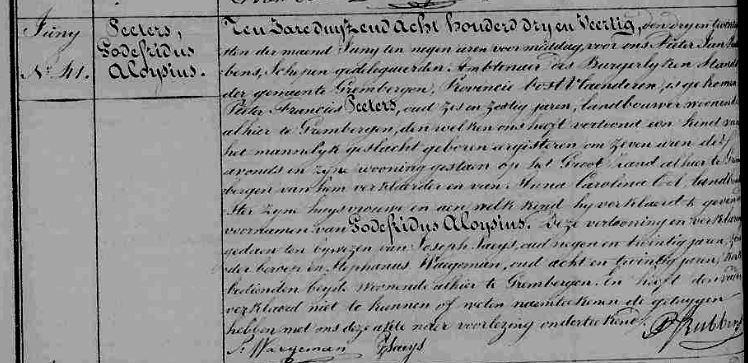 Juny
N° 41.
Peeters,
Godefridus
Aloysius.
Ten Jare duyzend acht honderd dry en Veertig, den dry en twin
sten der maend Juny ten negen uren voor middag, voor ons Pieter Jan Rub
bens, Schepen gedelegueerden Ambtenaer des Burgerlyken Stands
der gemeente Grembergen, Provincie Oost Vlaenderen, is gekomen
Pieter Francies Peeters, oud zes en zestig jaren, landbouwer woonende
alhier te Grembergen, den welken ons heeft vertoond een kind van
het mannelyk geslacht geboren eergisteren om zeven uren des
avonds in zyne wooning gestaen op het Groot Zand alhier te Grem
bergen van hem verklaerder en van Anna Carolina Cool, landb
ster zyne huysvrouwe en aen welk kind hy verklaerd te geven de
voornamen van Godefridus Aloysius. Deze vertooning en verklaring
gedaen ten bywezen van Joseph Saeys, oud negen en twintig jaren,
en Stephanus Waegeman, oud acht en twintig jaren,
bedienden beyde woonende alhier te Grembergen. En heeft den vader
verklaerd niet te kunnen of weten naemteekenen de getuygen
hebben met ons deze akte naer voorlezing onderteekend.
P. J. Rubbens
S. Waegeman J. Saeys